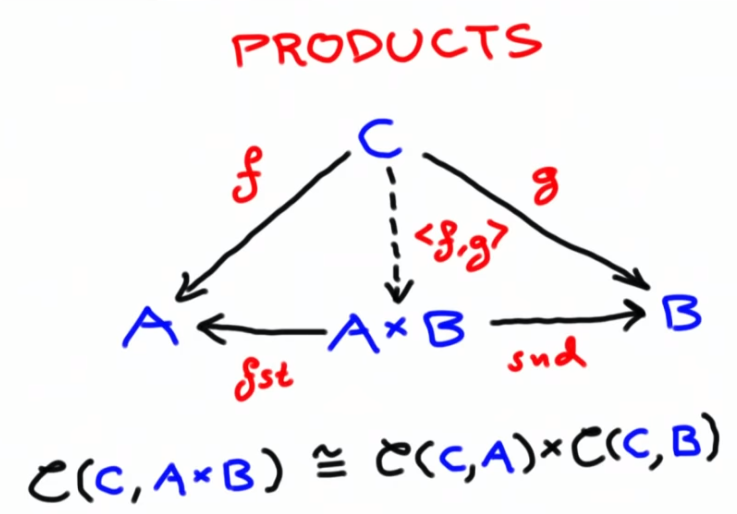 PRODUCTS
C
f
g
<f,g>
A
A × B
B
fst
snd
𝒞(C, A×B) ≅ 𝒞(C,A)×𝒞(C,B)